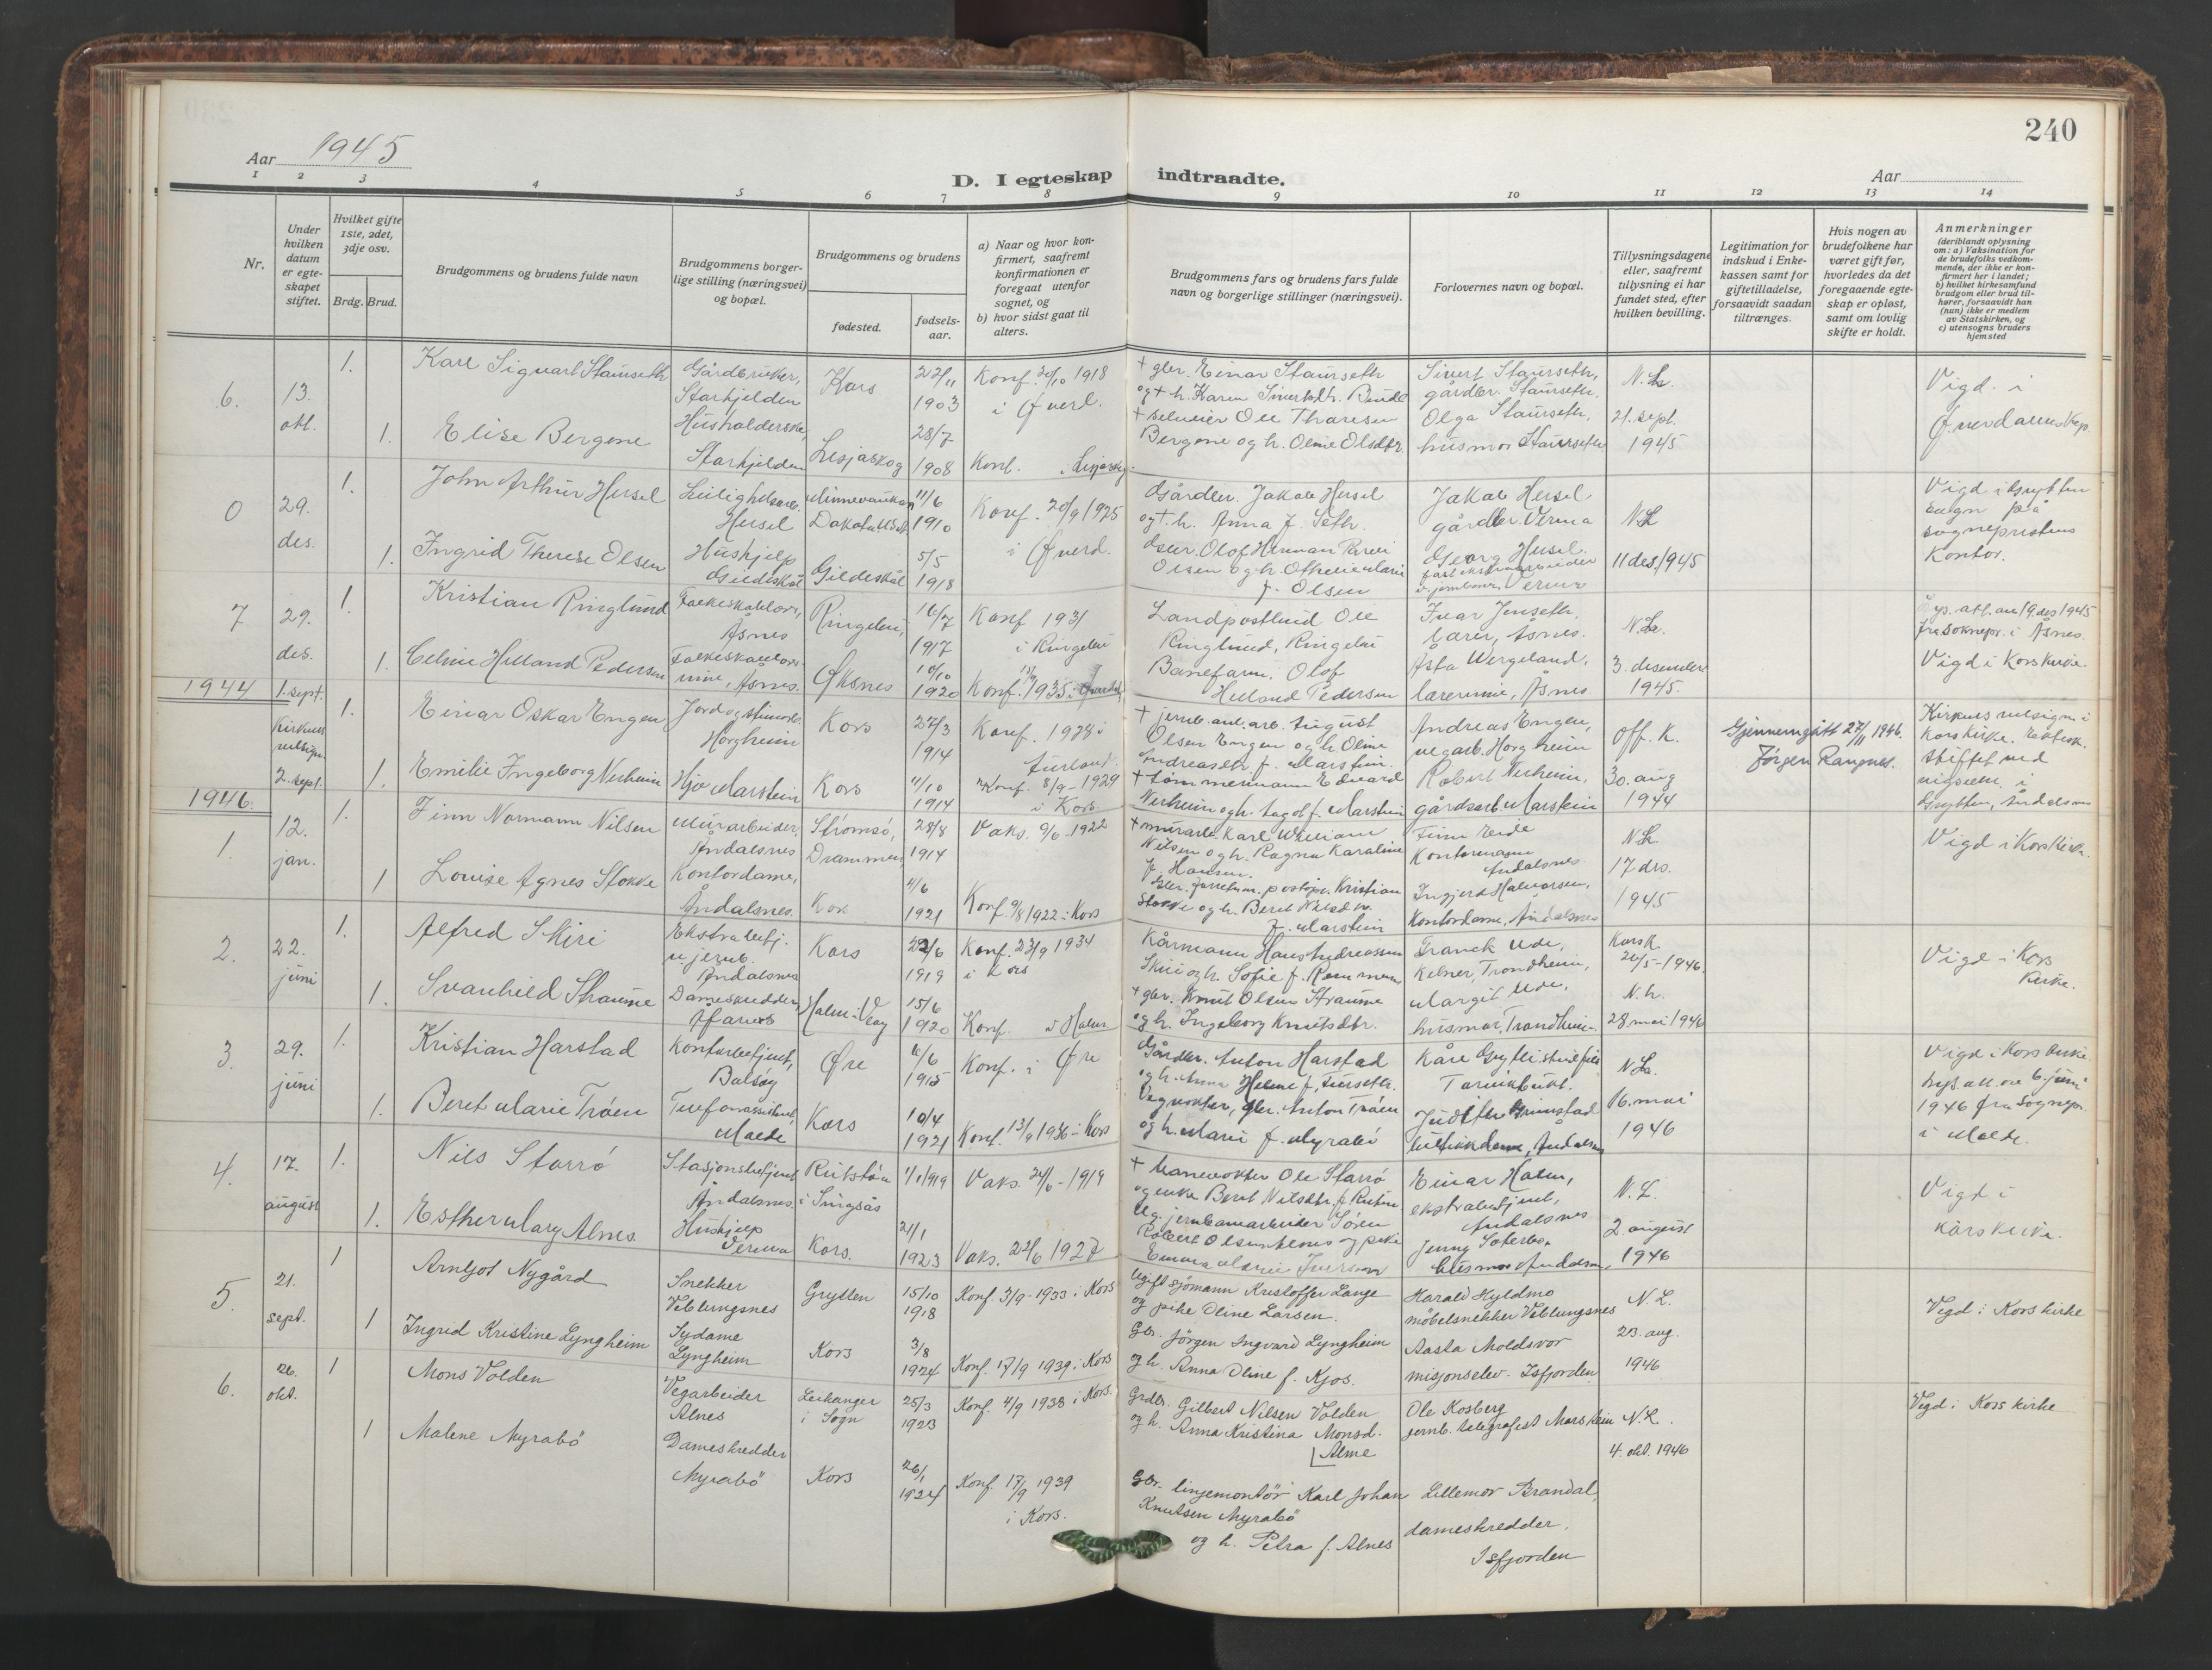 240
Aar 1945
D. I egteskap indtraadte.
Aar
1 2 3 4 5 6 7 8 9 10 11 12 13 14
Nr.
Under hvilken datum er egte-skapet stiftet.
Hvilket gifte 1ste, 2det, 3dje osv.
Brdg. Brud.
Brudgommens og brudens fulde navn
Brudgommens borger-lige stilling (næringsvei) og bopæl.
Brudgommens og brudens
fødested.
fødsels-aar.
a) Naar og hvor kon-firmert, saafremt konfirmationen er foregaat utenfor sognet, og
b) hvor sidst gaat til alters.
Brudgommens fars og brudens fars fulde navn og borgerlige stillinger (næringsvei).
Forlovernes navn og bopæl.
Tillysningsdagene eller, saafremt tillysning ei har fundet sted, efter hvilken bevilling.
Legitimation for indskud i Enke-kassen samt for giftetilladelse, forsaavidt saadan tiltrænges.
Hvis nogen av brudefolkene har været gift før, hvorledes da det foregaaende egte-skap er opløst, samt om lovlig skifte er holdt.
Anmerkninger
(deriblandt oplysning om: a) Vaksination for de brudefolks vedkom-mende, der ikke er kon-firmert her i landet; b) hvilket kirkesamfund brudgom eller brud til-hører, forsaavidt han (hun) ikke er medlem av Statskirken, og c) utensogns bruders hjemsted
6. 13. okt.
1. Karl Sigvart Staurseth Gårdbruker, Starhjelden Kors 22/11 1903 Konf. 20/10 1918 i Øverd.
+ gbr. Einar Staurseth og + h. Karen Sivertdtr.
Sivert Staurseth, gårdbr. Staurseth.
1. Elise Bergene Husholderske, Starhjelden Lesjaskog 28/7 1908 Konf. i Lesjaskog.
+ selveier Ole Tharesen Bergene og h. Oline Olsdtr.
Olga Staurseth, husmor Staurseth
N.L. 21. sept. 1945
Vigd. i Øverdalen Kap.
0 29. des.
1. John Arthur Hersel Hersel Dakota USA 11/6 1910 Konf. 20/9 1925 i Øverd.
Gårdbr. Jakob Hersel og + h. Anna f. Seth.
Jakob Hersel gårdbr. Verma
1. Ingrid Therese Olsen Hushjelp Gildeskål Gildeskål 5/5 1918
Olof Herman Olsen og h. f. Olsen
Georg Hersel. Verma
N.L. 11 des. 1945
Vigd i Grytten sogn på sogneprestens kontor.
7 29. des.
1. Kristian Ringlund Åsnes Ringebu, 16/7 1917 Konf 1931 i Ringebu
Landpostbud Ole Ringlund, Ringebu
Ivar Jenseth, lærer, Åsnes.
1. Celine Helland Pedersen Åsnes. Øksnes 10/10 1920 Konf. 1935
Baneform. Olof Helland Pedersen
Åsta Wergeland, lærerinne, Åsnes
N.L. 3. desember 1945.
Lys. att. av 19 des 1945 fra soknepr. i Åsnes. Vigd i Kors kirke.
1944 1. sept. 2. sept.
1. Einar Oskar Engen Horgheim Kors 27/3 1914 Konf. 1928 i
+ jernb. anl. arb. August Olsen Engen og h. Oline Andreasdtr f. Marstein.
Andreas Engen, vegarb. Horgheim
1. Emilie Ingeborg Nerheim Hjv Marstein Kors 11/10 1914 Konf. 8/9 - 1929 i Kors
+ tømmermann Edvard Nerheim og h. f. Marstein
Robert Nerheim, gårdsarb. Marstein
Off. K. 30. aug 1944
Gjennemgått 27/11 1946. Jørgen Rangnes.
Kors kirke. stiftet ved i Grytten, Åndalsnes
1946.
1. 12. jan.
1. Finn Normann Nilsen Murarbeider, Åndalsnes Strømsø, Drammen 28/8 1914 Vaks. 9/6 1922
+ murarb. Karl William Nilsen og h. Ragna Karoline f. Hansen.
Finn Eide Kontormann Åndalsnes
1 Louise Agnes Stokke Kontordame, Åndalsnes. Kors 4/6 1921 Konf. 9/8 1922 i Kors
Kristian Stokke og h. Beret f. Marstein
Ingjerd Halvorsen, Kontordame, Åndalsnes
N.L. 17 des. 1945
Vigd i Kors kirke.
2. 22. juni
1. Alfred Skiri Ekstrabetj. v. jernb. Åndalsnes Kors 22/6 1919 Konf. 23/9 1934 i Kors
Hans Andreassen Skiri og h. Sofie f. Remmem
Franck Ude, Kelner, Trondheim,
1. Svanhild Straume Dameskredder, Åfarnes Holm i Veøy 15/6 1920 Konf. i Holm
+ gbr. Knut Olsen Straume og h. Ingeborg Knutsdtr.
Margit Ude, husmor, Trondheim.
Kors K. 26/5 - 1946. N.L. 28 mai 1946
Vigd i Kors kirke.
3 29. juni
1. Kristian Harstad Kontorbetjent, Batsøy Øre 6/6 1915 Konf. i Øre
Gårdbr. Anton Harstad og h. Anna Helene f. Furseth.
Kåre Tornikbukt.
1. Beret Marie Trøen Telefonassistent, Molde Kors 10/4 1921 Konf. 13/9 1936 i Kors
Vegvokter, gbr. Anton Trøen og h. Marie f. Myrabø
Judith Grimstad butikkdame, Åndalsnes
N.L. 16. mai 1946
Vigd i Kors kirke. Lys. att. av 6. juni 1946 fra Sognepr. i Molde.
4. 17. august
1. Nils Starrø Stasjonsbetjent Åndalsnes. i Singsås 1/1 1919 Vaks. 24/6 - 1919
+ banevokter Ole Starrø og enke Beret Nilsdtr.
Einar Holm, ekstrabetjent, Åndalsnes
1. Esther Mary Alnes Hushjelp Verma Kors. 21/1 1923 Vaks. 22/6 1927
Ug. jernbanearbeider Søren Robert Olsen Alnes og pike Emma Marie Iverson
Jenny husmor Åndalsnes
N.L. 2 august 1946
Vigd i Kors kirke.
5. 21. sept.
1 Arnljot Nygård Snekker Veblungsnes Grytten 15/10 1918 Konf. 3/9 - 1933 i Kors
Ugift sjømann Kristoffer Lange og pike Oline Larsen.
Harald Hyldmo møbelsnekker Veblungsnes
1 Ingrid Kristine Lyngheim Sydame Lyngheim Kors 3/8 1924 Konf. 17/9 1939 i Kors
Gbr. Jörgen Ingvard Lyngheim og h. Anna Oline f. Kjos.
Aasta Moldsvor misjonselev. Isfjorden
N.L. 23. aug. 1946
Vigd i Kors kirke
6. 26. okt.
1 Mons Volden Vegarbeider Alnes Leikanger i Sogn 25/3 1923 Konf. 4/9 1938 i Kors.
Grdbr. Gilbert Nilsen Volden og h. Anna Kristina Monsd. Alme
Ole Kosberg jernb. telegrafist Marstein
1 Malene Myrabö Dameskredder Myrabö Kors 26/1 1924 Konf. 17/9 1939 i Kors.
Gbr. linjemontör Karl Johan Knutsen Myrabö og h. Petra f. Alnes
Lillemor Brandal, dameskredder, Isfjorden
N.L. 4. okt. 1946
Vigd i Kors kirke